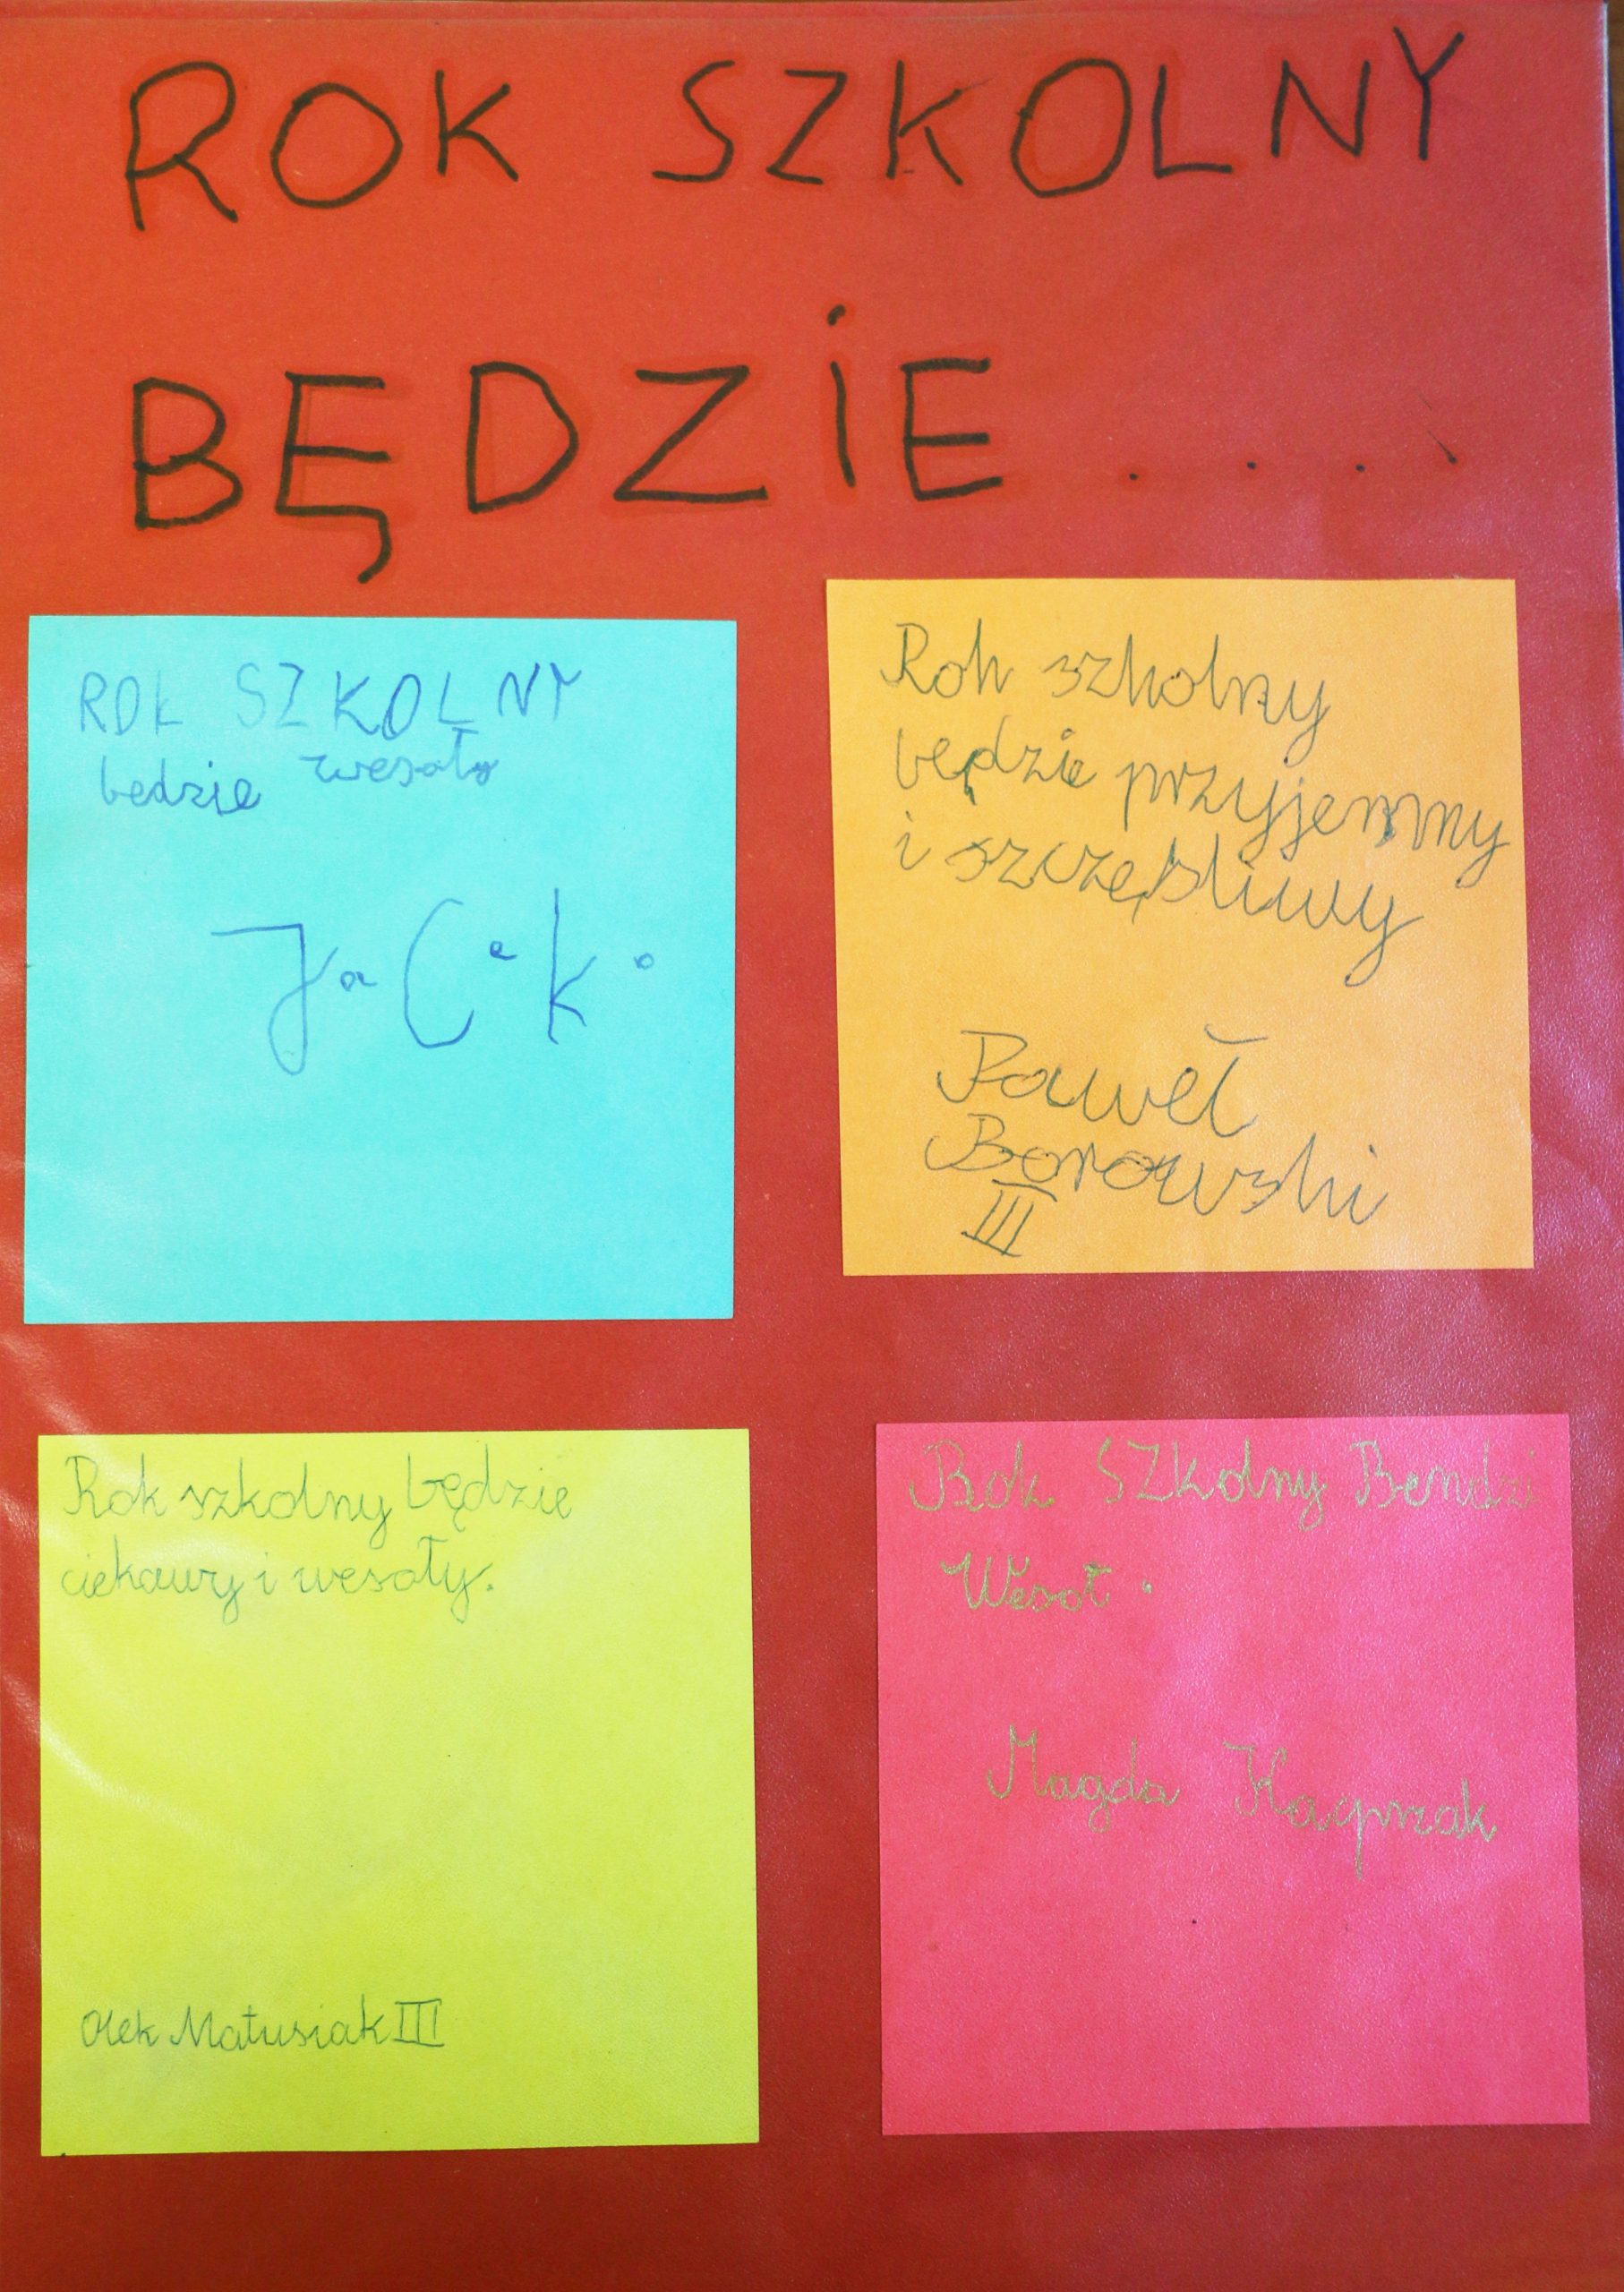 ROK SZKOLNY
BĘDZiE....
ROK SZKOLNY
będzie wesoły
JaCek.
Rok szkolny
będzie przyjemny
i szczęśliwy
Paweł
Borowski
III
Rok szkolny będzie
ciekawy i wesoły.
Olek Matusiak III
Rok SZkolny Bendzi
Wesoł.
Magda Kacprzak